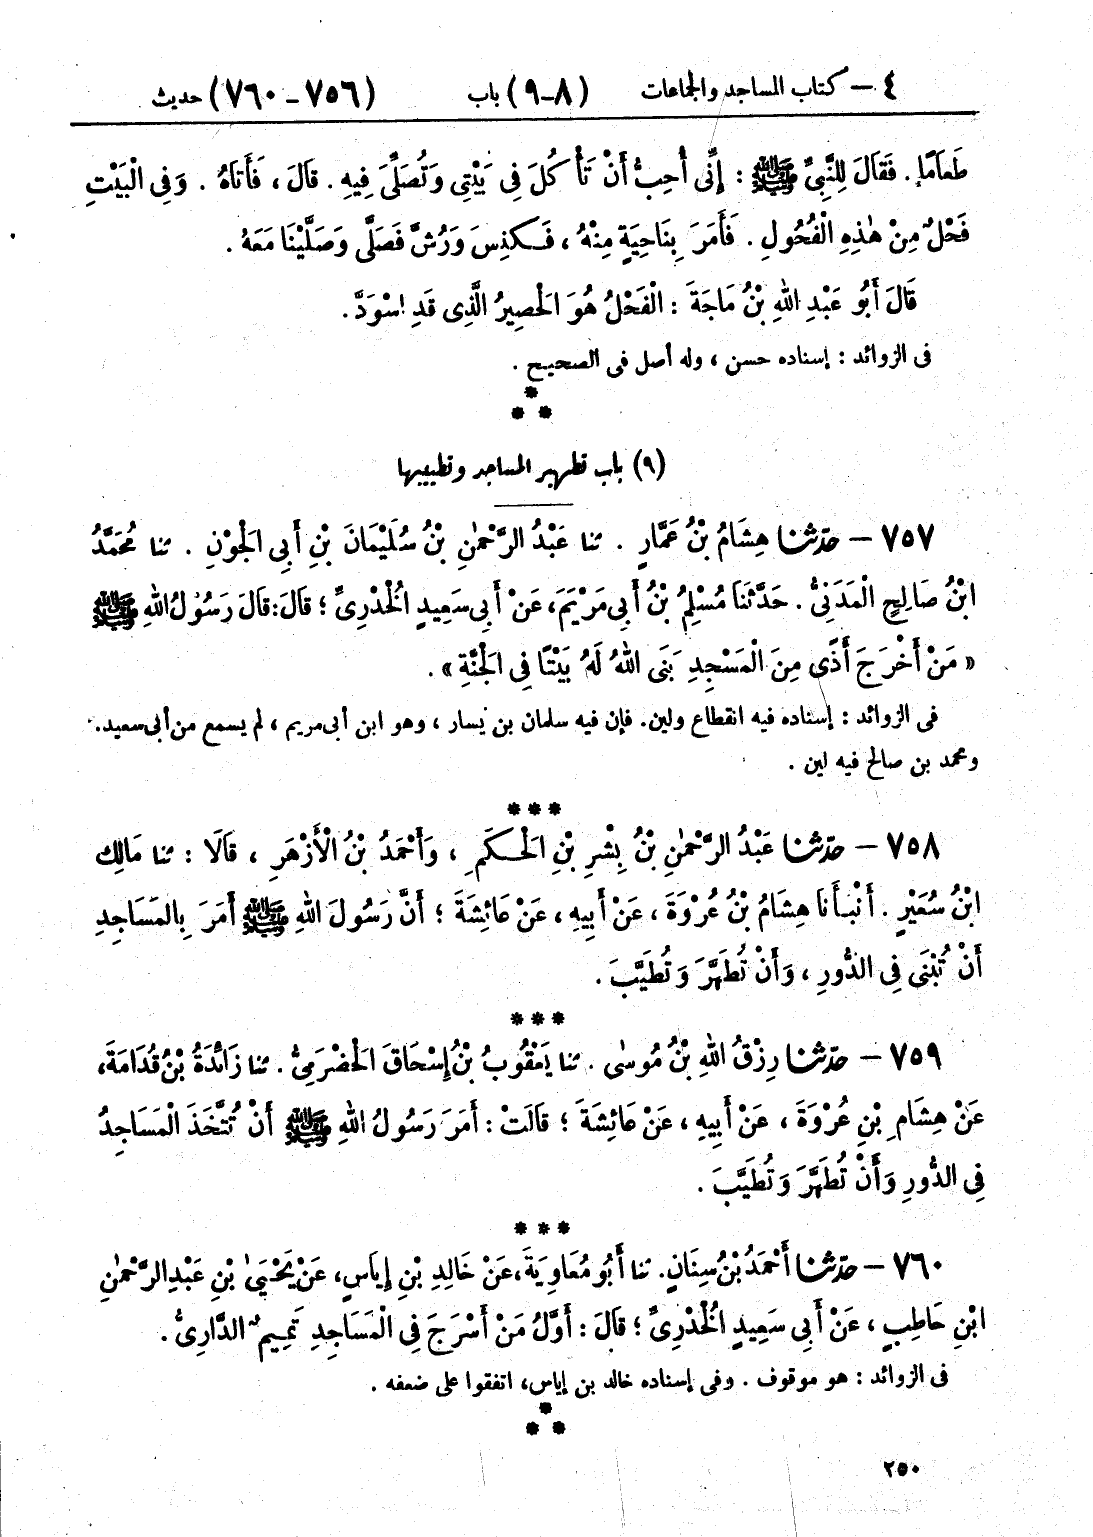 ٤ – كتاب المساجد والجماعات (٨-٩) باب (٧٥٦-٧٦٠) حديث
طَعَامًا. فَقَالَ لِلنَّبِيِّ ﷺ : إِنِّى أُحِبُّ أَنْ تَأْكُلَ فِى بَيْتِى وَتُصَلِّىَ فِيهِ. قَالَ، فَأَتَاهُ. وَفِى الْبَيْتِ
فَحْلٌ مِنْ هٰذِهِ الْفُحُولِ. فَأَمَرَ بِنَاحِيَةٍ مِنْهُ، فَكُنِسَ وَرُشَّ فَصَلَّى وَصَلَّيْنَا مَعَهُ.
قَالَ أَبُو عَبْدِ اللهِ بْنُ مَاجَةَ : الْفَحْلُ هُوَ الْحَصِيرُ الَّذِى قَدِ اسْوَدَّ.
فى الزوائد : إسناده حسن، وله أصل فى الصحيح.
*
* *
(٩) باب تطهير المساجد وتطييبها
٧٥٧ – حدّثنا هِشَامُ بْنُ عَمَّارٍ. ثنا عَبْدُ الرَّحْمٰنِ بْنُ سُلَيْمَانَ بْنِ أَبِى الْجَوْنِ. ثنا مُحَمَّدُ
ابْنُ صَالِحٍ الْمَدَنِىُّ. حَدَّثَنَا مُسْلِمُ بْنُ أَبِى مَرْيَمَ، عَنْ أَبِى سَعِيدٍ الْخُدْرِىِّ؛ قَالَ: قَالَ رَسُولُ اللهِ ﷺ
« مَنْ أَخْرَجَ أَذًى مِنَ الْمَسْجِدِ بَنَى اللهُ لَهُ بَيْتًا فِى الْجَنَّةِ ».
فى الزوائد : إسناده فيه انقطاع ولين. فإن فيه سلمان بن يسار، وهو ابن أبى مريم، لم يسمع من أبى سعيد.
ومحمد بن صالح فيه لين.
***
٧٥٨ – حدّثنا عَبْدُ الرَّحْمٰنِ بْنُ بِشْرِ بْنِ الْحَكَمِ، وَأَحْمَدُ بْنُ الْأَزْهَرِ، قَالَا : ثنا مَالِكُ
ابْنُ سُعَيْرٍ. أَنْبَأَنَا هِشَامُ بْنُ عُرْوَةَ، عَنْ أَبِيهِ، عَنْ عَائِشَةَ؛ أَنَّ رَسُولَ اللهِ ﷺ أَمَرَ بِالْمَسَاجِدِ
أَنْ تُبْنَى فِى الدُّورِ، وَأَنْ تُطَهَّرَ وَتُطَيَّبَ.
***
٧٥٩ – حدّثنا رِزْقُ اللهِ بْنُ مُوسٰى. ثنا يَعْقُوبُ بْنُ إِسْحَاقَ الْحَضْرَمِىُّ. ثنا زَائِدَةُ بْنُ قُدَامَةَ،
عَنْ هِشَامِ بْنِ عُرْوَةَ، عَنْ أَبِيهِ، عَنْ عَائِشَةَ؛ قَالَتْ : أَمَرَ رَسُولُ اللهِ ﷺ أَنْ تُتَّخَذَ الْمَسَاجِدُ
فِى الدُّورِ وَأَنْ تُطَهَّرَ وَتُطَيَّبَ.
***
٧٦٠ – حدّثنا أَحْمَدُ بْنُ سِنَانٍ. ثنا أَبُو مُعَاوِيَةَ، عَنْ خَالِدِ بْنِ إِيَاسٍ، عَنْ يَحْيَىٰ بْنِ عَبْدِ الرَّحْمٰنِ
ابْنِ حَاطِبٍ، عَنْ أَبِى سَعِيدٍ الْخُدْرِىِّ؛ قَالَ : أَوَّلُ مَنْ أَسْرَجَ فِى الْمَسَاجِدِ تَمِيمٌ الدَّارِىُّ.
فى الزوائد : هو موقوف. وفى إسناده خالد بن إياس، اتفقوا على ضعفه.
*
* *
٢٥٠